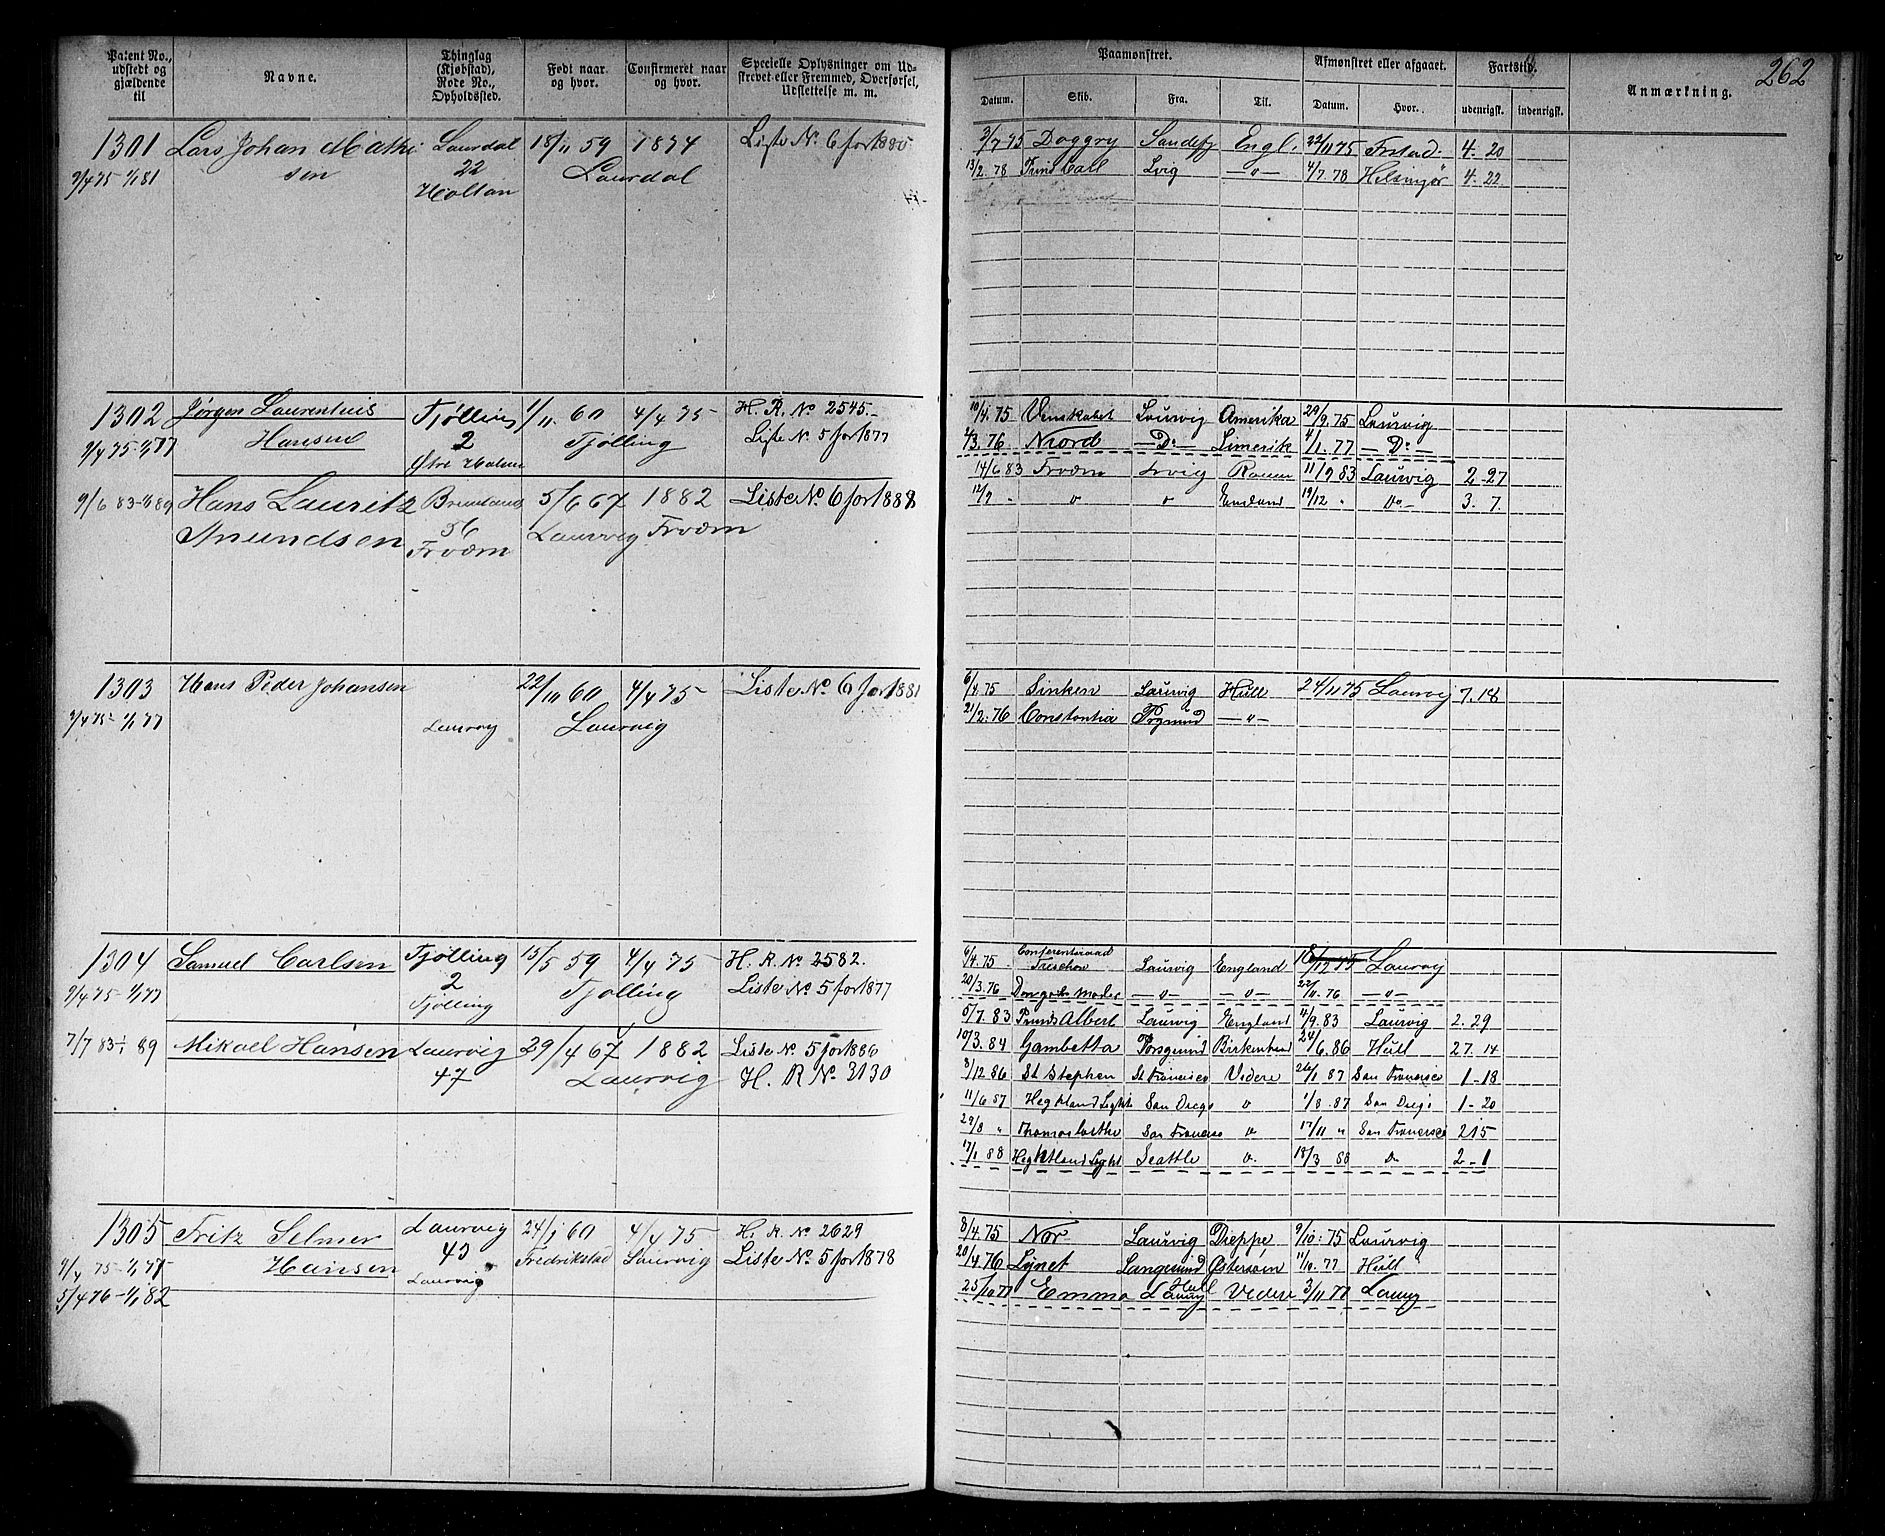 262
Patent No., udstedt og gjældende til
Navne.
Thinglag (Kjøbstad), Rode No., Opholdssted.
Født naar og hvor.
Confirmeret naar og hvor.
Specielle Oplysninger om Udskrevet eller Fremmed, Overførsel, Udslettelse m. m.
Paamønstret.
Datum. Skib. Fra. Til.
Afmønstret eller afgaaet.
Datum. Hvor.
Fartstid.
udenrigsk. indenrigsk.
Anmærkning.
1301 Lars Johan Mathi Laurdal 18/11 59 1874 Liste No. 6 for 1880
sen 22 Laurdal
9/4 75 1/1 81 Holtan
3/7 75 Doggry Sandefj Engl. 22/11 75 4. 20
13/2. 78 Lvig —"— 4/7. 78 4. 22
1302 Jørgen Laurentius Tjølling 1/11. 60 4/4 75 H. R. No 2545.
Hansen 2 Tjølling Liste No. 5 for 1877
9/4 75-1/1 77 Østre
10/4. 75 Venskabet Laurvig Amerika 29/9. 75 Laurvig
3. 76. Niord —Do— Limerik 1. 77 —Do—
9/6 83-1/1 89 Hans Lauritz 5/6 67 1882 Liste No. 6 for 1888
Anundsen 56 Laurvig Tvødn
14/6 83 Lvig 11/9 83 Laurvig 2-27
12/9 " " " 19/12 " Do- 3. 7.
1303 Hans Peder Johansen 22/11 60 4/4 75 Liste No. 6 for 1881
9/4 75-1/1 77 Laurvig Laurvig
6/4. 75 Sinken Laurvig Hull 24/11 75 Laurvig 7. 18
21/2. 76 Constantia Prgrund —"—
1304 Samuel Carlsen Tjølling 15/5 59 4/4 75 H. R. No. 2582.
9/4 75-1/1 77 2 Tjølling Liste No. 5 for 1877
Tjølling
6/4. 75 Conferentsraad Treschow Laurvig England 18/12 75 Laurvig
20/3. 76 —"— —"— 22/11. 76 —"—
7/7 83 1/1 89 Mikael Hansen Laurvig 29/4 67 1882 Liste No. 5 for 1886
47 Laurvig H. R No. 3130
5/7. 83 Prinds Albert Laurvig England 4/9. 83 Laurvig 2. 29
10/3. 84 Gambetta Porsgrund Birkenhead 24/6. 86 Hull 27. 14
3/12 86 St Stephen St Francisco Videre 26/1 87 San Francisco 1-18
11/6 87 Hegkland Light San Diego " 1/8. 87 San Diego 1-20
29/8 " San Francisco " 17/11 " San Francisco 2 15
17/1 88 Hegkland Light Seattle " 18/3 88 " 2-1
1305 Fritz Selmer Laurvig 24/1 60 4/4 75 H. R. No 2629
Hansen 43 Fredrikstad Laurvig Liste No. 5 for 1878
9/4 75-1/1 77 Laurvig
5/4 76-1/1 82
8/4. 75 Nor Laurvig Dieppe 9/10. 75 Laurvig
20/4. 76 Lynet Langesund Østersøen 11/10. 77 Hull
25/10 77 Emma Hull Laurvig Videre 3/11 77 Laurvig